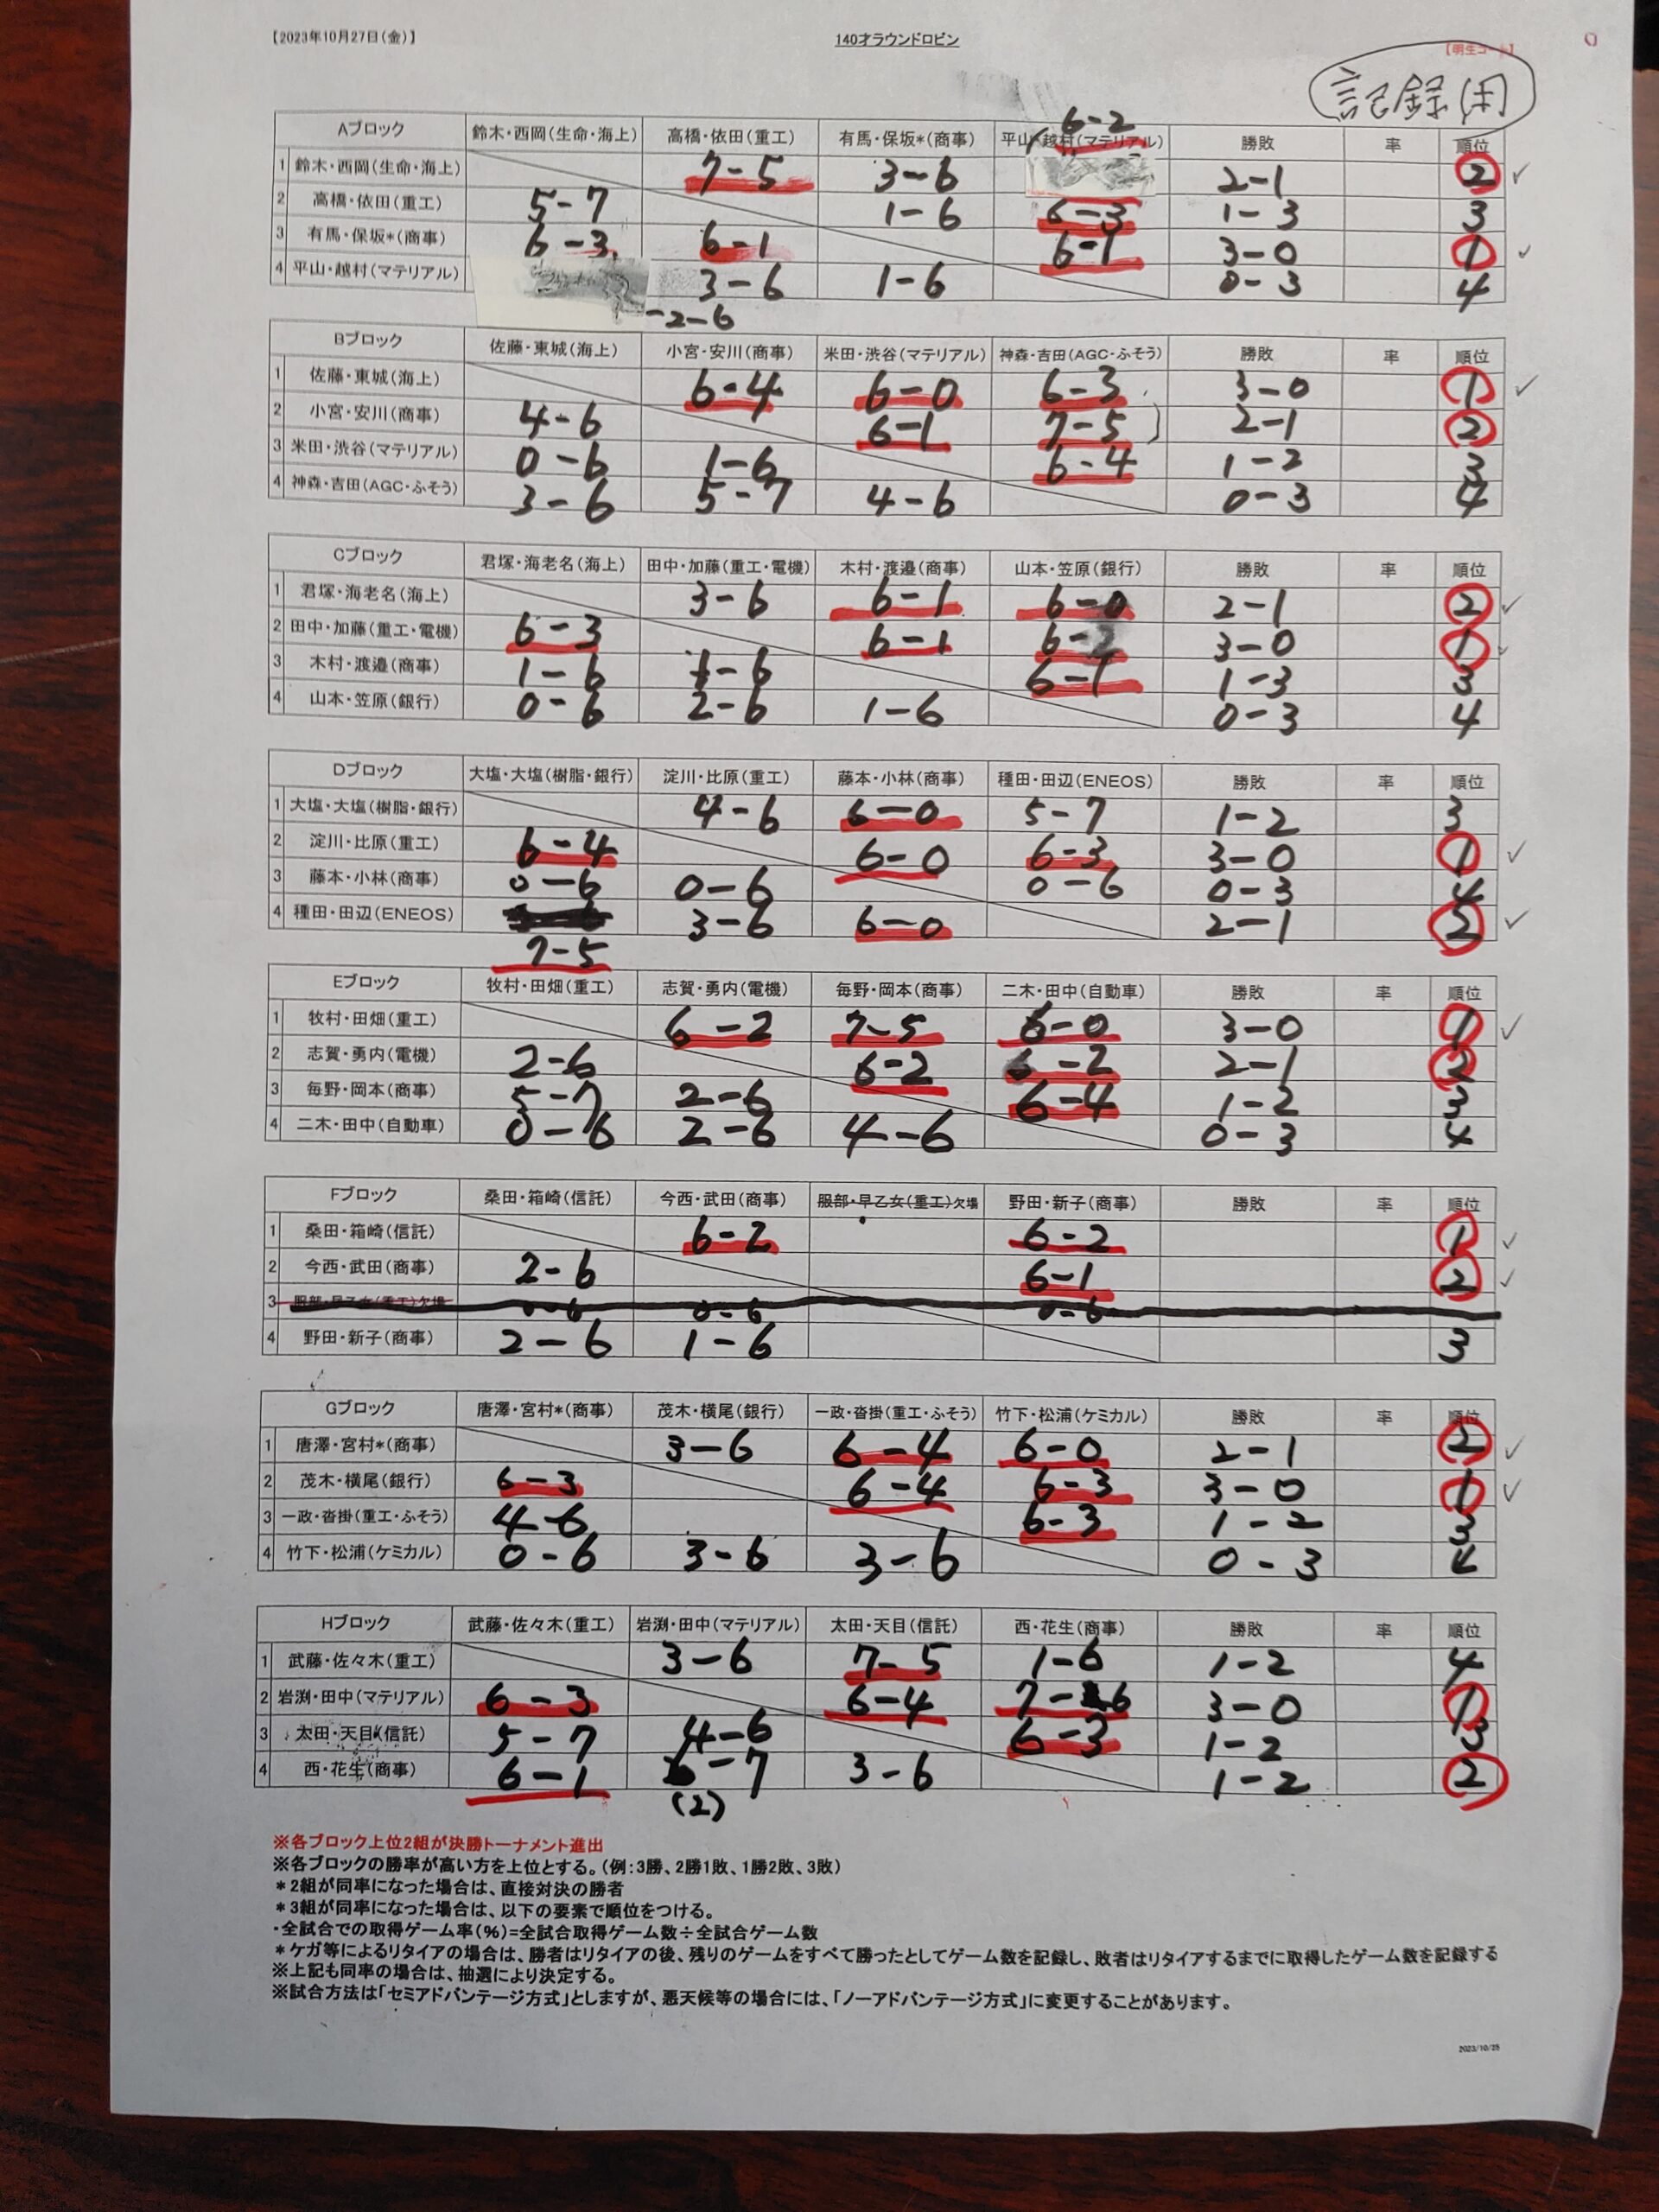 【2023年10月27日(金)】
140才ラウンドロビン
【明生コート】
記録用
6-2
Aブロック 鈴木・西岡(生命・海上) 高橋・依田(重工) 有馬・保坂*(商事) 平山・越村(マテリアル) 勝敗 率 順位
1 鈴木・西岡(生命・海上) 7-5 3-6 2-1 2
2 高橋・依田(重工) 5-7 1-6 6-3 1-3 3
3 有馬・保坂*(商事) 6-3 6-1 6-1 3-0 1
4 平山・越村(マテリアル) 3-6 1-6 0-3 4
2-6
Bブロック 佐藤・東城(海上) 小宮・安川(商事) 米田・渋谷(マテリアル) 神森・吉田(AGC・ふそう) 勝敗 率 順位
1 佐藤・東城(海上) 6-4 6-0 6-3 3-0 1
2 小宮・安川(商事) 4-6 6-1 7-5 2-1 2
3 米田・渋谷(マテリアル) 0-6 1-6 6-4 1-2 3
4 神森・吉田(AGC・ふそう) 3-6 5-7 4-6 0-3 4
Cブロック 君塚・海老名(海上) 田中・加藤(重工・電機) 木村・渡邉(商事) 山本・笠原(銀行) 勝敗 率 順位
1 君塚・海老名(海上) 3-6 6-1 6-0 2-1 2
2 田中・加藤(重工・電機) 6-3 6-1 6-2 3-0 1
3 木村・渡邉(商事) 1-6 1-6 6-1 1-3 3
4 山本・笠原(銀行) 0-6 2-6 1-6 0-3 4
Dブロック 大塩・大塩(樹脂・銀行) 淀川・比原(重工) 藤本・小林(商事) 種田・田辺(ENEOS) 勝敗 率 順位
1 大塩・大塩(樹脂・銀行) 4-6 6-0 5-7 1-2 3
2 淀川・比原(重工) 6-4 6-0 6-3 3-0 1
3 藤本・小林(商事) 0-6 0-6 0-6 0-3 4
4 種田・田辺(ENEOS) 3-6 6-0 2-1 2
7-5
Eブロック 牧村・田畑(重工) 志賀・勇内(電機) 毎野・岡本(商事) 二木・田中(自動車) 勝敗 率 順位
1 牧村・田畑(重工) 6-2 7-5 6-0 3-0 1
2 志賀・勇内(電機) 2-6 6-2 6-2 2-1 2
3 毎野・岡本(商事) 5-7 2-6 6-4 1-2 3
4 二木・田中(自動車) 0-6 2-6 4-6 0-3 4
Fブロック 桑田・箱崎(信託) 今西・武田(商事) 服部・早乙女(重工)欠場 野田・新子(商事) 勝敗 率 順位
1 桑田・箱崎(信託) 6-2 6-2 1
2 今西・武田(商事) 2-6 6-1 2
3 服部・早乙女(重工)欠場 0-6 0-6 0-6
4 野田・新子(商事) 2-6 1-6 3
Gブロック 唐澤・宮村*(商事) 茂木・横尾(銀行) 一政・沓掛(重工・ふそう) 竹下・松浦(ケミカル) 勝敗 率 順位
1 唐澤・宮村*(商事) 3-6 6-4 6-0 2-1 2
2 茂木・横尾(銀行) 6-3 6-4 6-3 3-0 1
3 一政・沓掛(重工・ふそう) 4-6 6-3 1-2 3
4 竹下・松浦(ケミカル) 0-6 3-6 3-6 0-3 4
Hブロック 武藤・佐々木(重工) 岩渕・田中(マテリアル) 太田・天目(信託) 西・花生(商事) 勝敗 率 順位
1 武藤・佐々木(重工) 3-6 7-5 1-6 1-2 4
2 岩渕・田中(マテリアル) 6-3 6-4 7-6 3-0 1
3 太田・天目(信託) 5-7 4-6 6-3 1-2 3
4 西・花生(商事) 6-1 6-7 3-6 1-2 2
(2)
※各ブロック上位2組が決勝トーナメント進出
※各ブロックの勝率が高い方を上位とする。(例:3勝、2勝1敗、1勝2敗、3敗)
*2組が同率になった場合は、直接対決の勝者
*3組が同率になった場合は、以下の要素で順位をつける。
・全試合での取得ゲーム率(%)=全試合取得ゲーム数÷全試合ゲーム数
*ケガ等によるリタイアの場合は、勝者はリタイアの後、残りのゲームをすべて勝ったとしてゲーム数を記録し、敗者はリタイアするまでに取得したゲーム数を記録する
※上記も同率の場合は、抽選により決定する。
※試合方法は「セミアドバンテージ方式」としますが、悪天候等の場合には、「ノーアドバンテージ方式」に変更することがあります。
2023/10/25